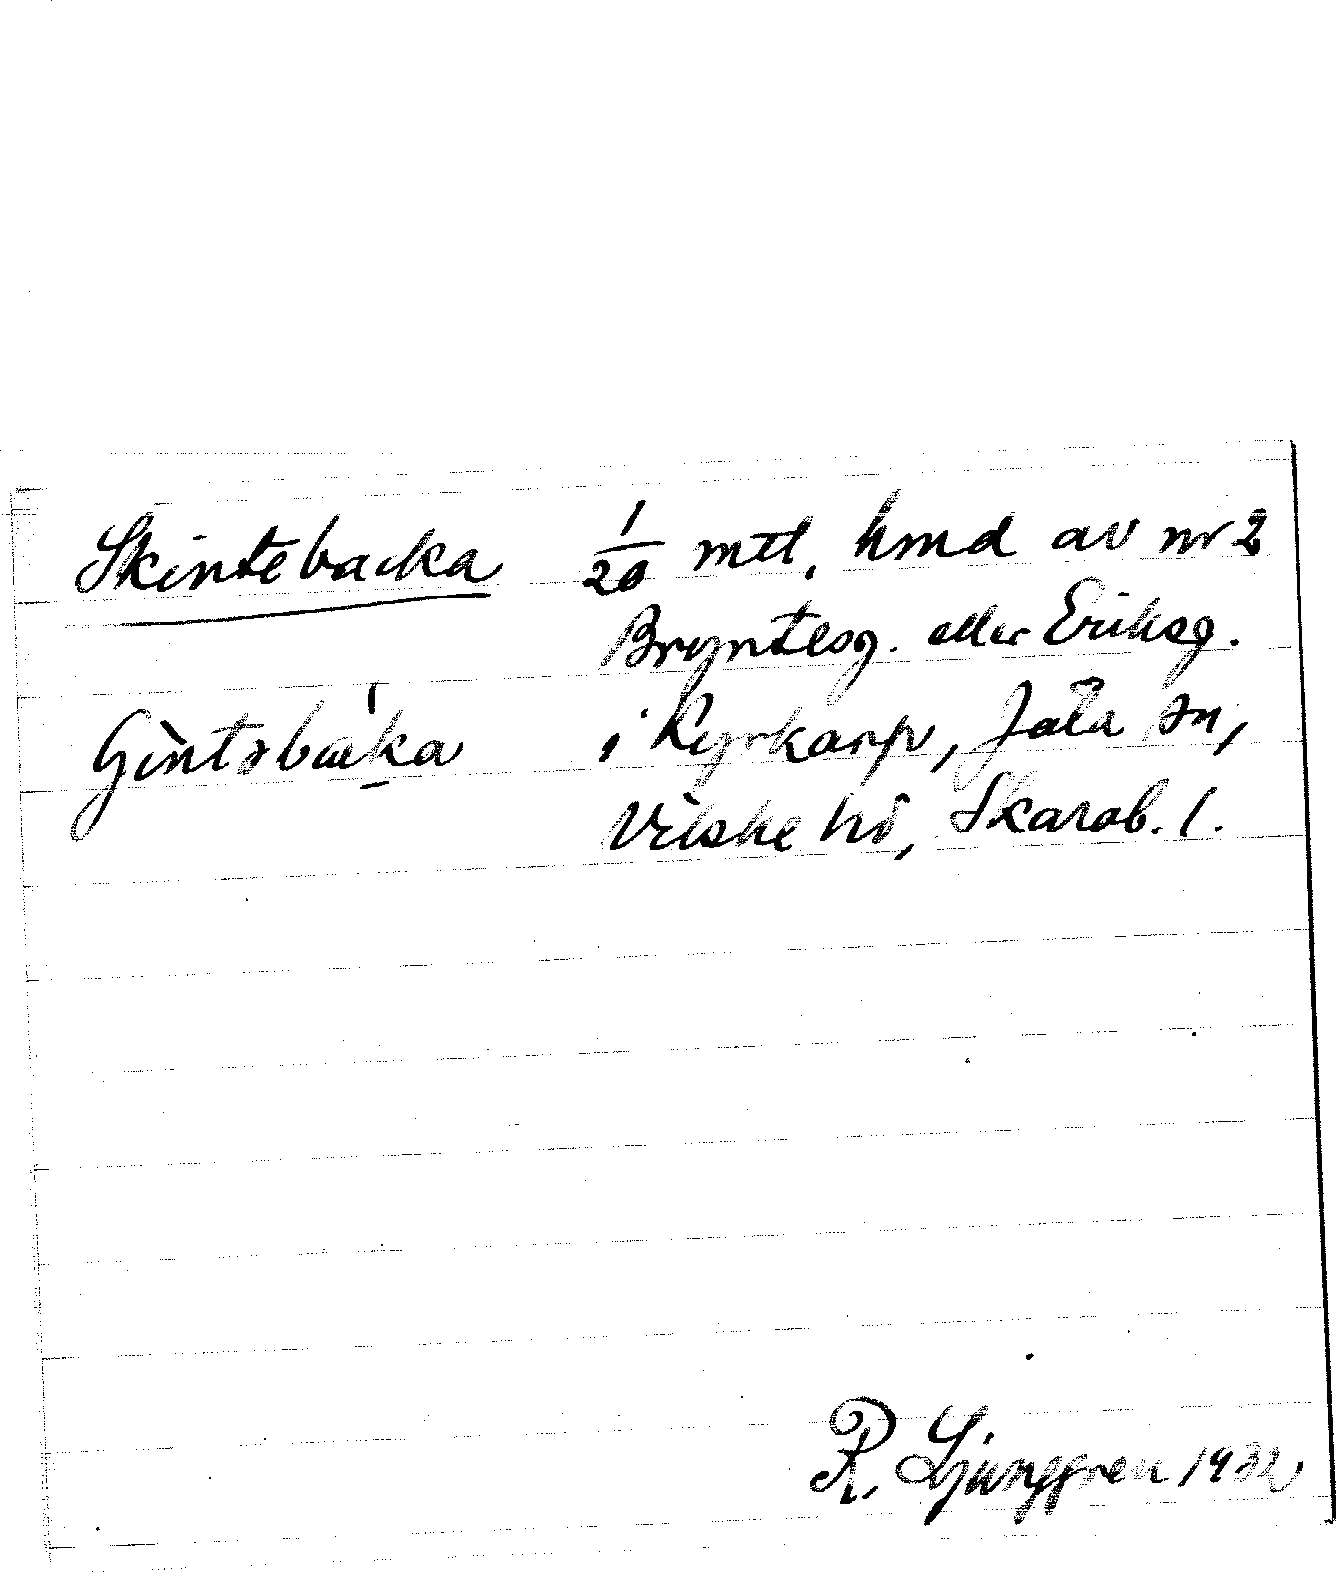 Skintebacka 1/20 mtl, hmd av nr 2
Bryntesg. eller Eriksg.
i Kyrkarp, Jäla sn,
Vilske hd, Skarab. l.
R. Ljunggren 1932